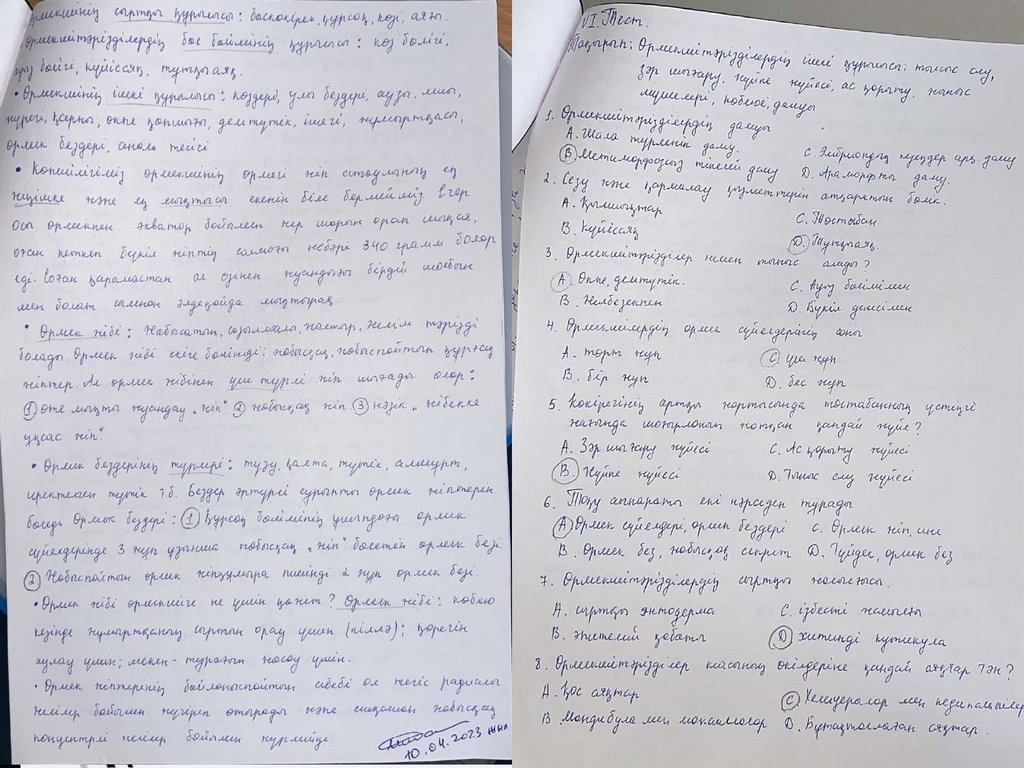 Өрмекшінің сыртқы құрылысы: баскөкірек, құрсақ, көзі, аяғы.
• Өрмекшітәрізділердің бас бөлімінің құрылысы: көз бөлігі,
ауыз бөлігі, күйіссяқ, тұтқыаяқ.
• Өрмекшінің ішкі құрылысы: көздері, улы бездері, аузы, миы,
жүрегі, қарны, өкпе қапшығы, демтүтек, ішегі, жұмыртқасы,
өрмек бездері, аналь тесігі
• Көпшілігіміз өрмекшінің өрмегі жіп атаулының ең
жіңішке және ең мықтысы екенін біле бермейміз. Егер
осы өрмекпен экватор бойымен жер шарын орап шықса,
оған кеткен бүкіл жіптің салмағы небәрі 340 грамм болар
еді. Соған қарамастан ол өзінен жуандығы бірдей
мен болат сымнан әлдеқайда мықтырақ.
• Өрмек жібі: Жабысатын, созылмалы, жылтыр, желім тәрізді
болады. Өрмек жібі екіге бөлінді; жабысқақ, жабыспайтын құрғақ
жіптер. Ал өрмек жібінен үш түрлі жіп шығады олар:
① өте мықты жуандау "жіп" ② жабысқақ жіп ③ нәзік "жібекке
ұқсас жіп".
• Өрмек бездерінің түрлері: түзу, қалта, түтік, алмұрт,
иректелген түтік т.б. Бездер әртүрлі сұрыпты өрмек жіптерін
бөледі. Өрмек бездері: ① Құрсақ бөлімінің ұшындағы өрмек
сүйелдерінде 3 жұп ұзынша жабысқақ "жіп" бөлетін өрмек безі.
② Жабыспайтын өрмек жіп шұмыра пішінді 2 жұп өрмек безі.
• Өрмек жібі өрмекшіге не үшін қажет? Өрмек жібі: көбею
кезінде жұмыртқаның сыртын орау үшін (пілла); қорегін
аулау үшін; мекен-тұрағын жасау үшін.
• Өрмек жіптерінің байланыспайтын себебі ол негіс радиалы
желілер бойымен жүгіреп отырады және ешқашан жабысқақ
концентрлі желілер бойымен жүрмейді.
10.04.2023 жыл
VI. Тест.
Тақырып: Өрмекшітәрізділердің ішкі құрылысы: тыныс алу,
зәр шығару, жүйке жүйесі, ас қорыту, жыныс
мүшелері, көбеюі, дамуы
1. Өрмекшітәрізділердің дамуы
А. Шала түрленіп даму. С. Эмбриондық кезеңдер арқ. даму
В. Метаморфозсыз тікелей даму D. Араморфты даму.
2. Сезу және қармалау қызметтерін атқаратын бөлік.
А. Қылышқтар С. Тостабан
В. Күйіссяқ D. Тұтқыаяқ.
3. Өрмекшітәрізділер немен тыныс алады?
А. Өкпе, демтүтік. С. Ауыз бөлімімен
В. Желбезекпен D. Бүкіл денесімен
4. Өрмекшілердің өрмек сүйелдерінің саны
А. төрт жұп С. үш жұп
В. бір жұп D. бес жұп
5. Көкірегінің артқы жартысында тостабанның үстіңгі
жағында шоғырланып жатқан қандай жүйе?
А. Зәр шығару жүйесі С. Ас қорыту жүйесі
В. Жүйке жүйесі D. Тыныс алу жүйесі
6. Тоқу аппараты екі нәрседен тұрады
А. Өрмек сүйелдері, өрмек бездері С. Өрмек жіп, ине
В. Өрмек без, жабысқақ секрет D. Түйдек, өрмек без
7. Өрмекшітәрізділердің сыртқы жабысы.
А. сыртқы энтодерма С. ізбесті жамылғы
В. эпителий қабаты D. хитинді кутикула
8. Өрмекшітәрізділер класының өкілдеріне қандай аяқтар тән?
А. Қос аяқтар С. Хелицералар мен педипальпілер
В Мандибула мен максиллалар D. Бұтақтылмаған аяқтар.